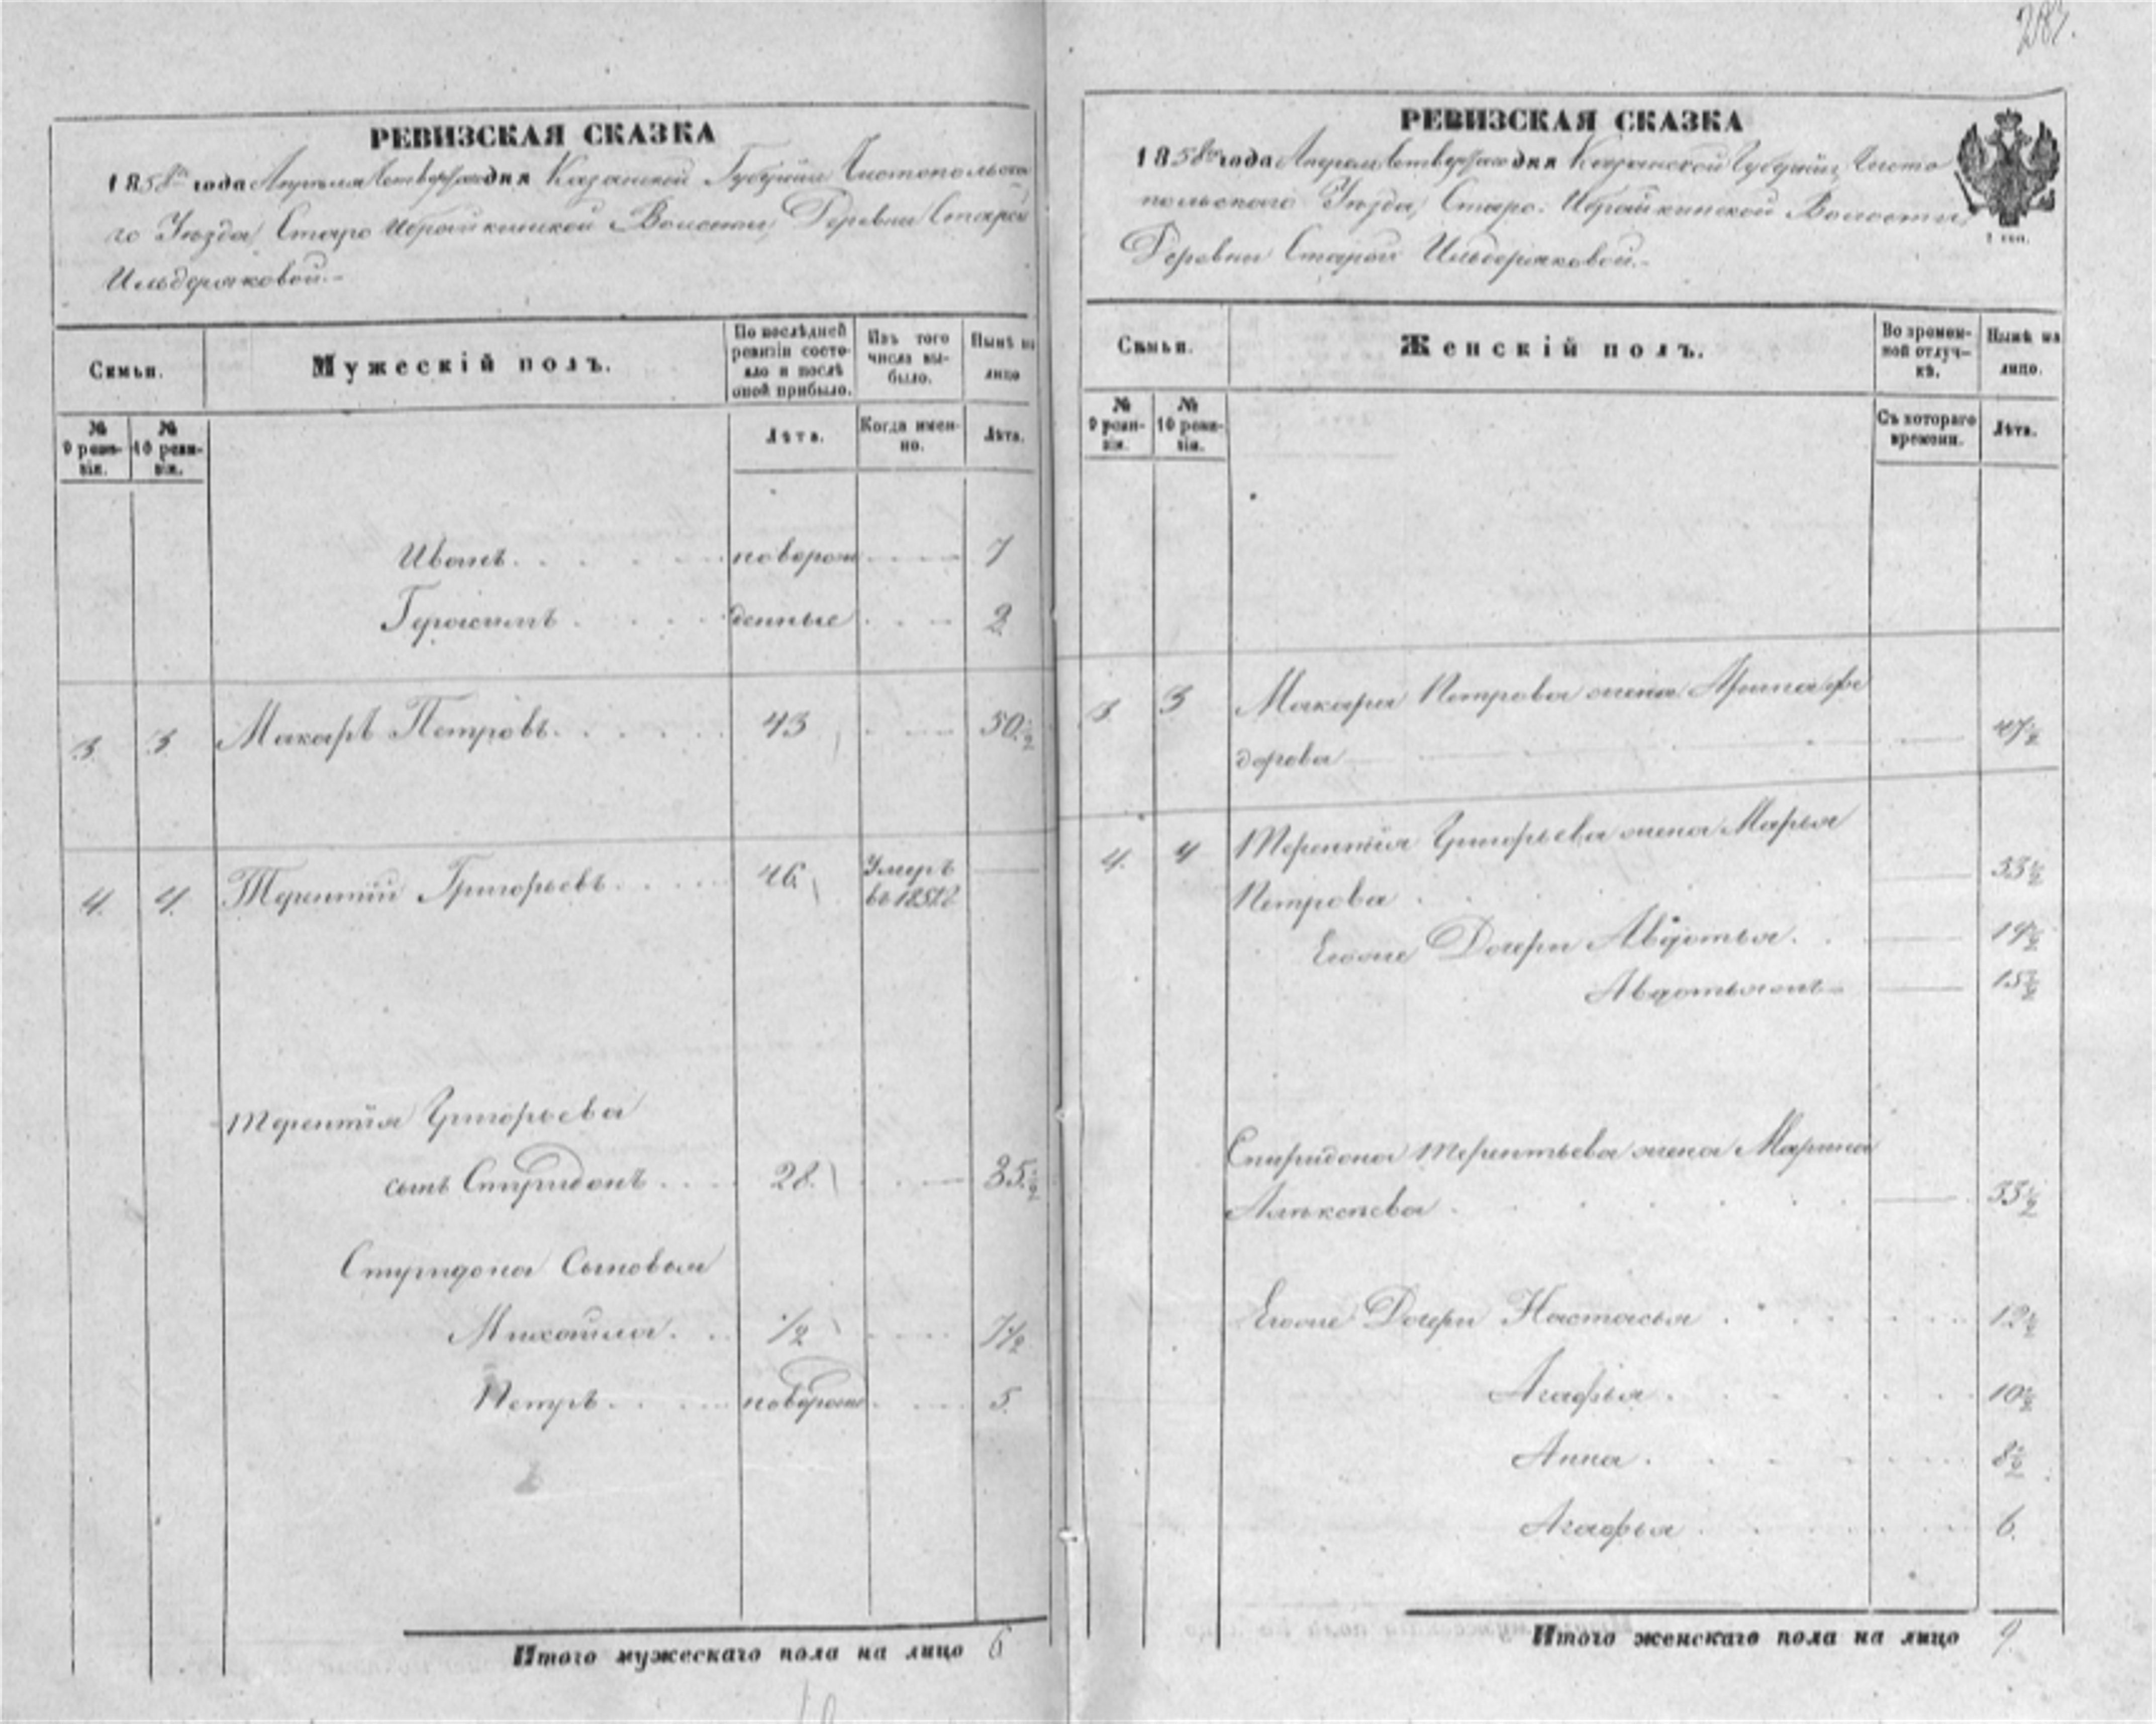 РЕВИЗСКАЯ СКАЗКА
1858го года Апреля четвертаго дня Казанской Губернiи Чистопольска
го Уѣзда, Старо Ибрайкинской Волости, Деревни Старой
Ильдеряковой.-
Семьи.
Мужескiй полъ.
По послѣдней ревизiи состояло и послѣ оной прибыло.
Изъ того числа выбыло.
Нынѣ на лицо
№ 9 ревизiи.
№ 10 ревизiи.
Лѣта.
Когда именно.
Лѣта.
Иванъ новорож 7
Герасимъ денные 2
3. 3. Макаръ Петровъ 43 50 1/2
4. 4. Терентiй Григорьевъ 46 Умеръ
Терентiя Григорьева
сынъ Спиридонъ 28 35 1/2
Спиридона Сыновья
Михайла 1/2 7 1/2
Петръ новорож 5.
Итого мужескаго пола на лицо 6
РЕВИЗСКАЯ СКАЗКА
1858го года Апреля четвертаго дня Казанской Губернiи, Чисто
польскаго Уѣзда, Старо-Ибрайкинской Волости,
Деревни Старой Ильдеряковой.-
Семьи.
Женскiй полъ.
Во временной отлучкѣ.
Нынѣ на лицо.
№ 9 ревизiи.
№ 10 ревизiи.
Съ котораго времени.
Лѣта.
3. 3 Макара Петрова жена Арина Фе
дорова 47 1/2
4. 4 Терентiя Григорьева жена Марья
Петрова 53 1/2
Егоже Дочери Авдотья 19 1/2
Авдотья 15 1/2
Спиридона Терентьева жена Марина
Алѣксѣева 33 1/2
Егоже Дочери Настасья 12 1/2
Агафья 10 1/2
Анна 8 1/2
Агафья 6.
Итого женскаго пола на лицо 9.